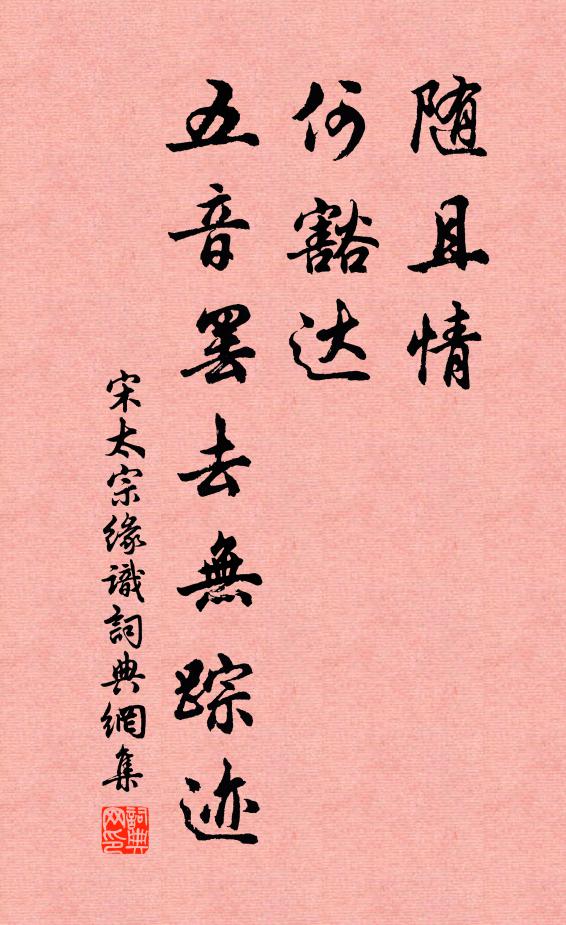 随且情
何豁达
五音罢去無踪迹
宋太宗缘識詞典網集
詞典网印